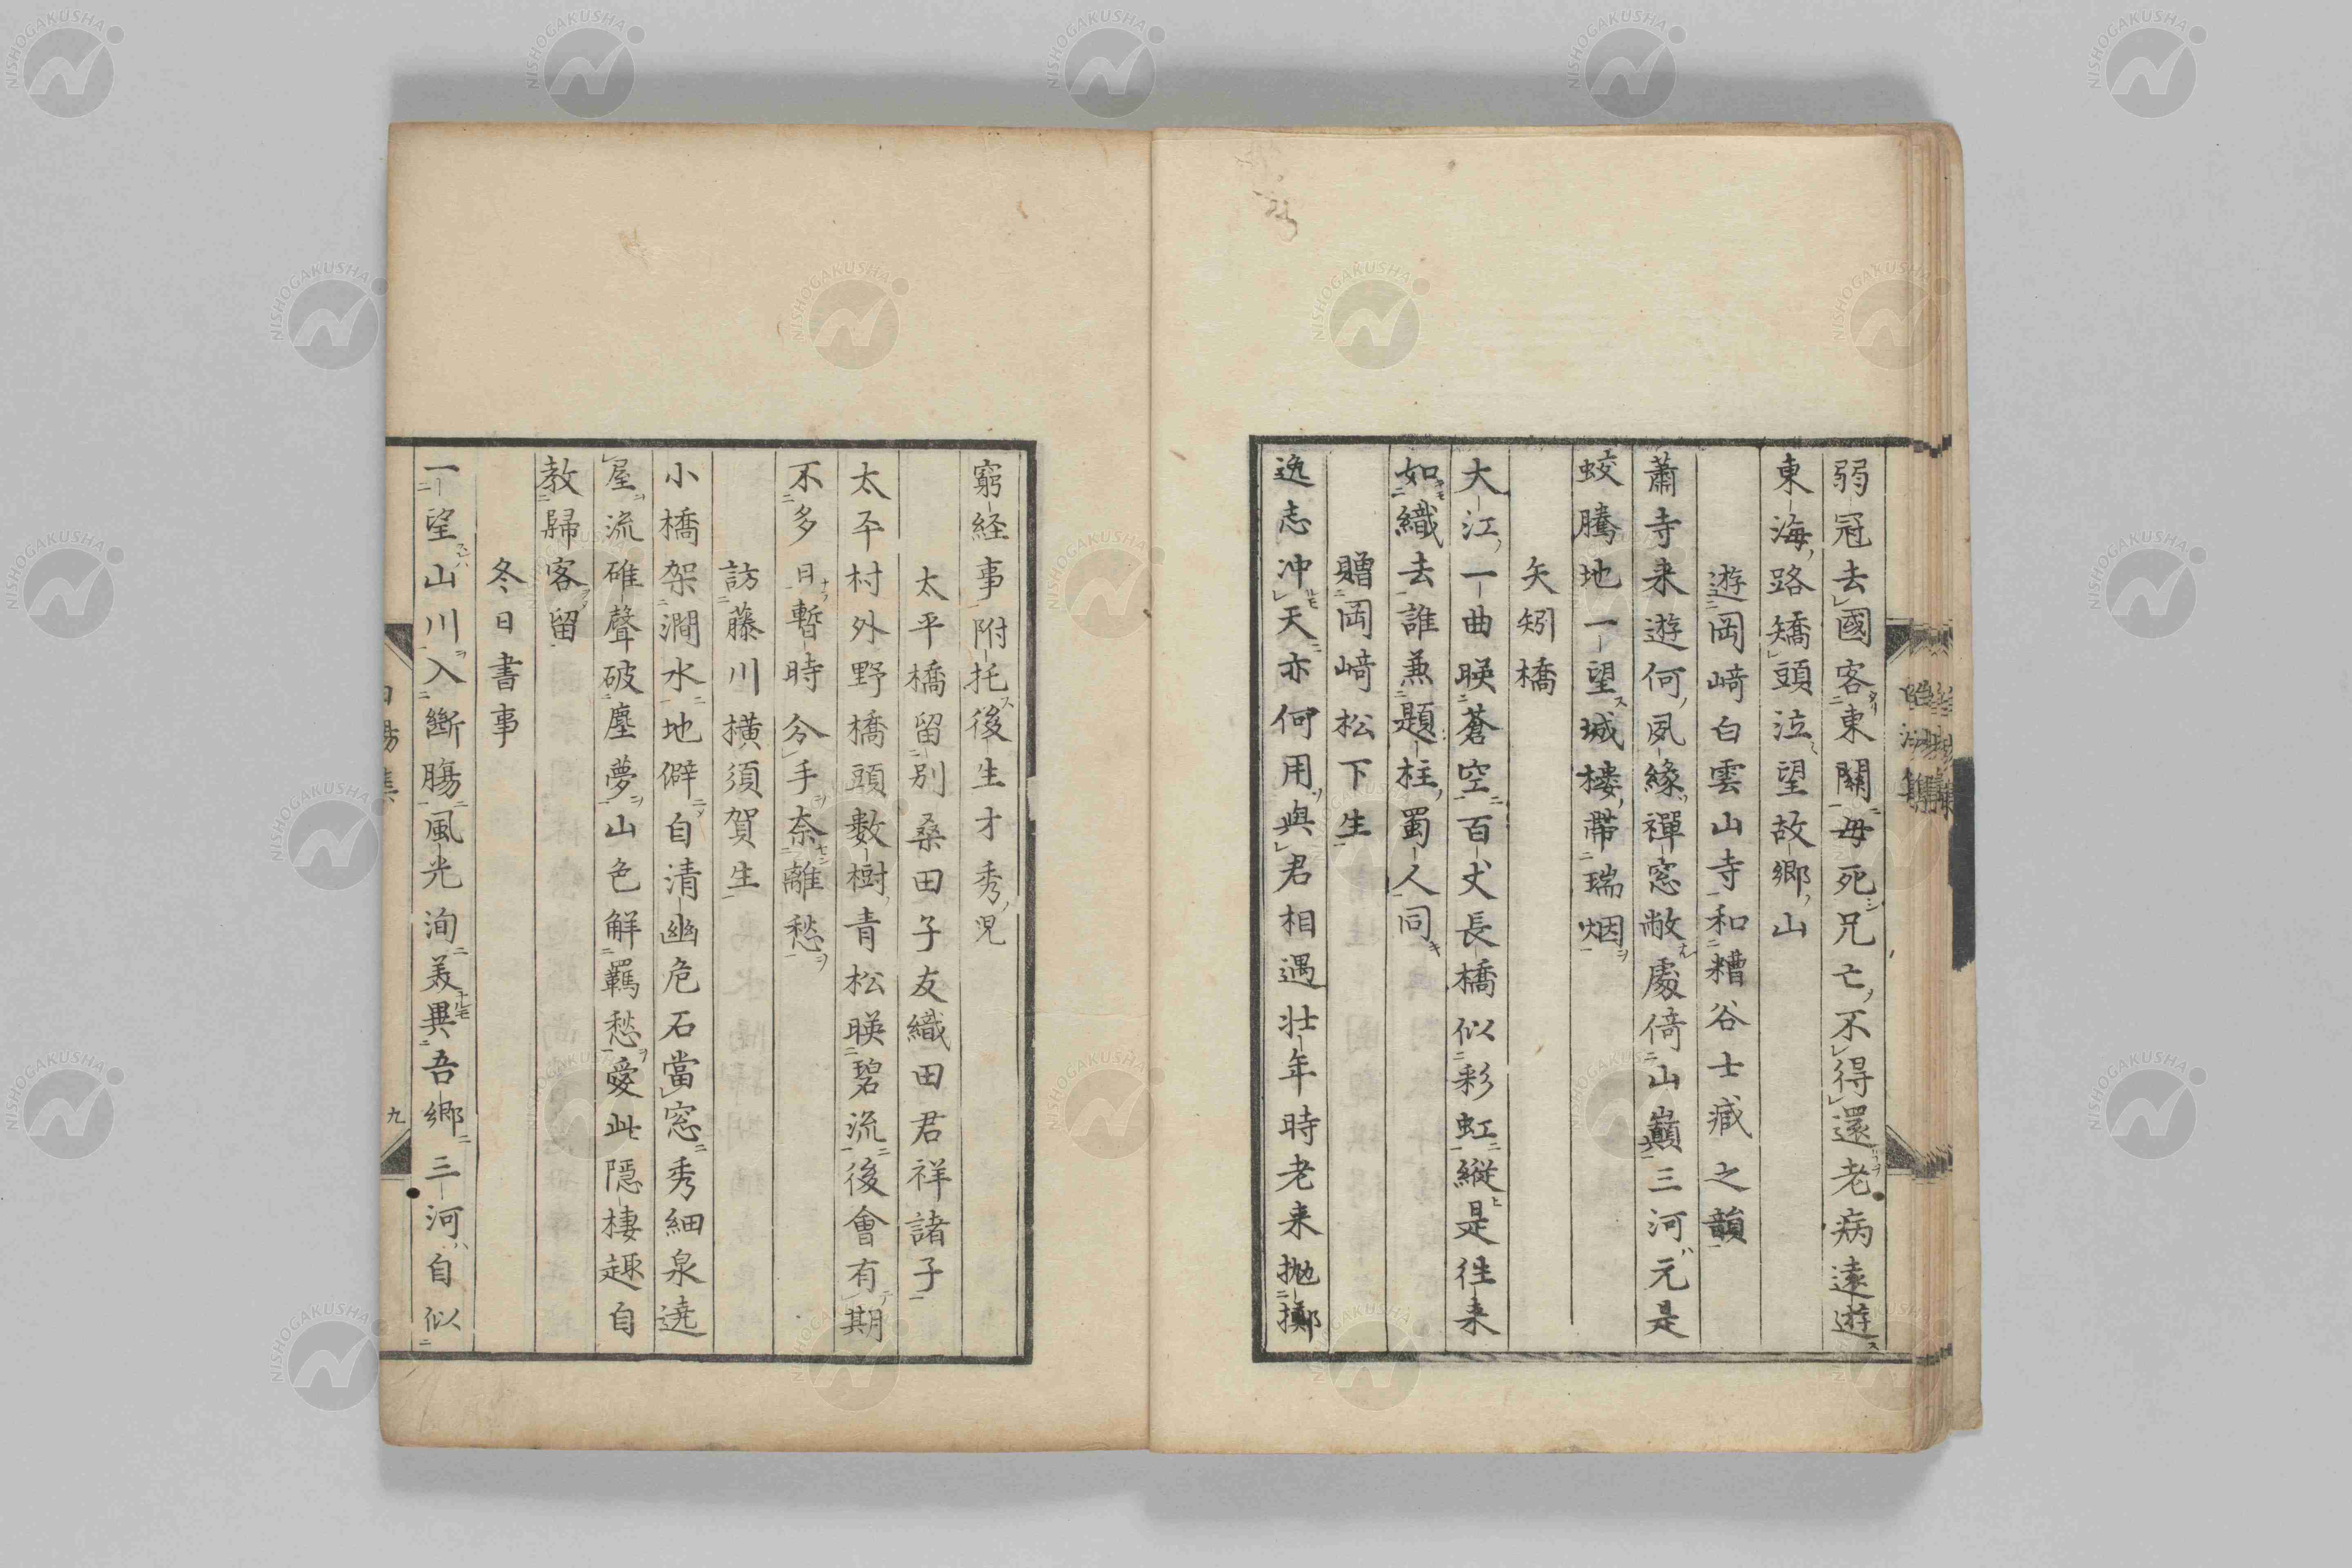 弱冠去國客東關母死兄亡不得還老病遠遊
東海路矯頭泣望故鄉山
遊岡﨑白雲山寺和糟谷士臧之韻
蕭寺来遊何夙緣禪窓敞處倚山巓三河元是
蛟騰地一望城楼帶瑞烟
矢矧橋
大江一曲暎蒼空百丈長橋似彩虹縦是往来
如織去誰兼題柱蜀人同
贈岡﨑松下生
逸志冲天亦何用與君相遇壮年時老来抛擲
窮経事附托後生才秀児
太平橋留別桑田子友織田君祥諸子
太平村外野橋頭數樹青松暎碧流後會有期
不多日暫時分手奈離愁
訪藤川横須賀生
小橋架澗水地僻自清幽危石當窓秀細泉遶
屋流碓聲破塵夢山色解羈愁愛此隠棲趣自
教歸客留
冬日書事
一望山川入斷腸風光洵美異吾鄉三河自似
九
NISHOGAKUSHA